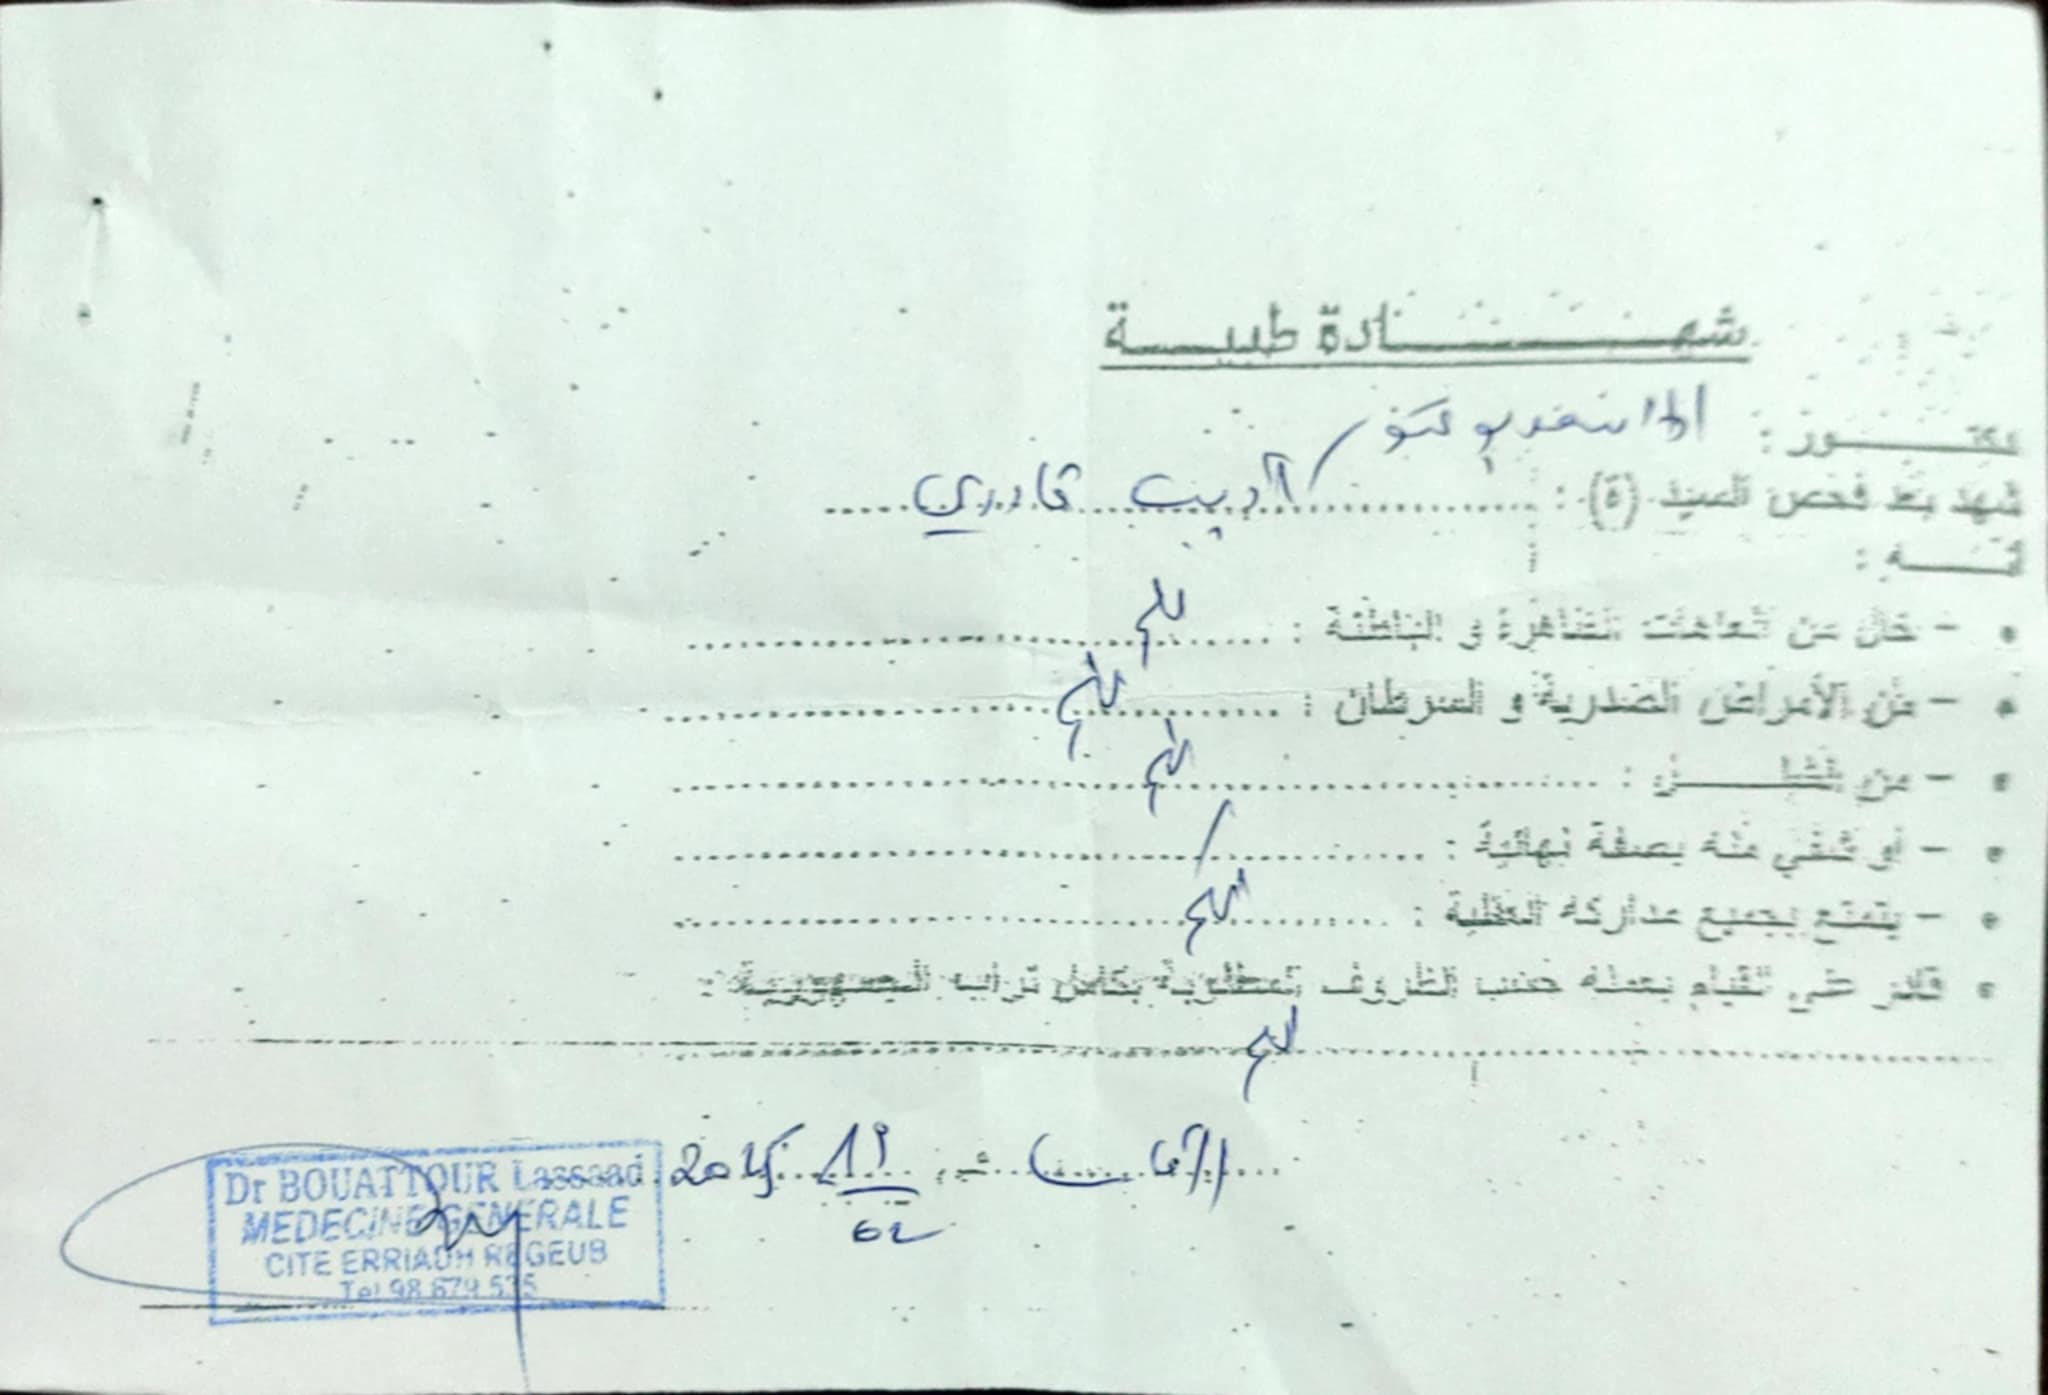 شهادة طبية
دكتور : الأسعد بوعتور
شهد بعد فحص السيد (ة) : أديب قادري
أنه :
- خال من العاهات الظاهرة و الباطنة :
- من الأمراض الصدرية و السرطان :
- من الشلل :
- أو شفي منه بصفة نهائية : /
- يتمتع بجميع مداركه العقلية :
قادر على القيام بعمله حسب الظروف المطلوبة بكامل تراب الجمهورية :
الرقاب في 19 02 2025
Dr BOUATTOUR Lassaad
MEDECINE GENERALE
CITE ERRIADH REGEUB
Tel 98 679 535